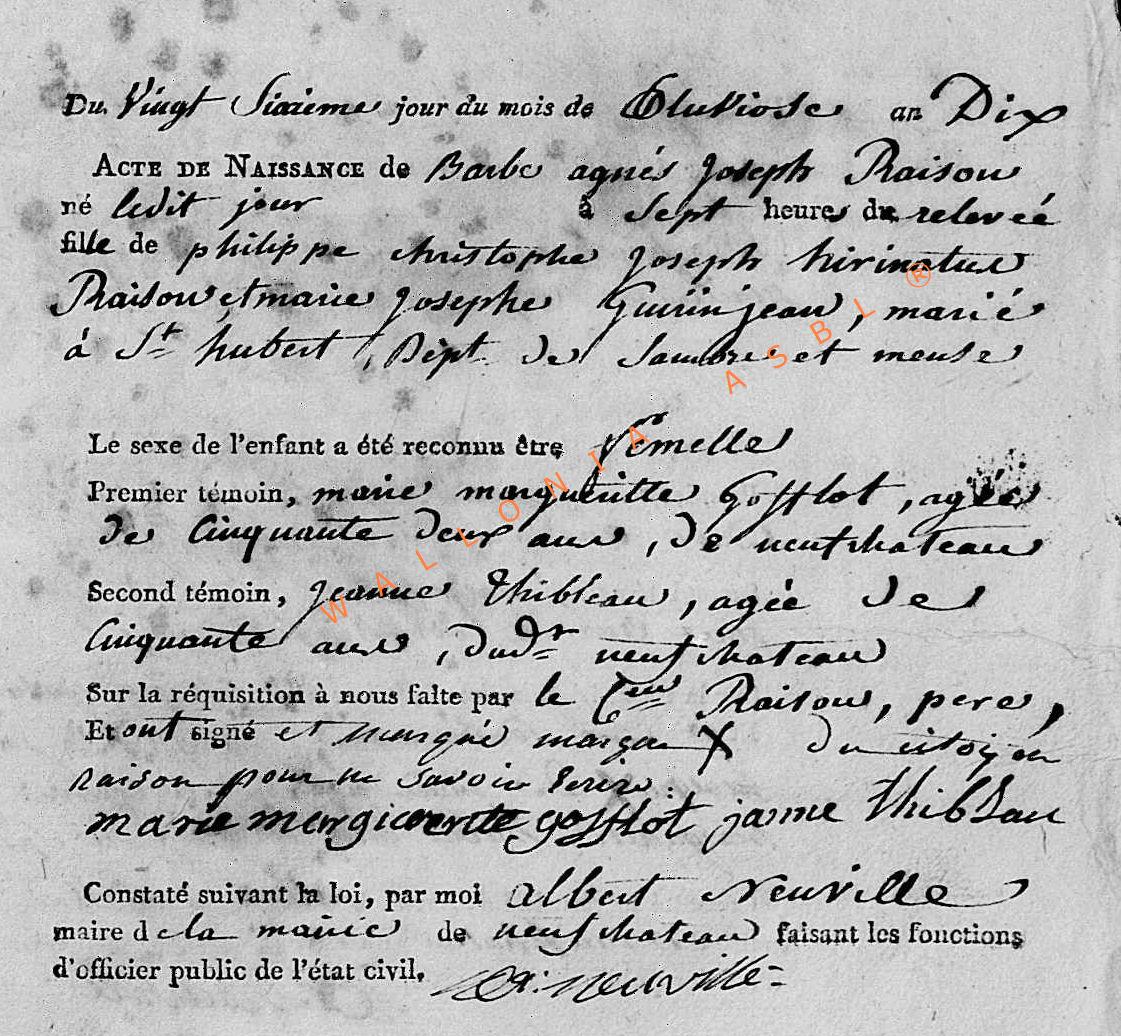 Du Vingt Sixieme jour du mois de Pluviose an Dix
ACTE DE NAISSANCE de Barbe agnés Joseph Raison
né ledit jour à Sept heures du releveé
fille de philippe christophe Joseph
Raison et marie Josephe , marié
à St hubert , Dépt. de Sambre et meuse
Le sexe de l'enfant a été reconnu être femelle
Premier témoin, marie margueritte Gofflot, agée
de Cinquante deux ans, de neufchateau
Second témoin, Jeanne thibleau, agée de
Cinquante ans, dudt neufchateau
Sur la réquisition à nous faite par le Cen Raison, pere,
Et ont signé et marqué marque X du citoyén
raison pour ne savoir Ecrire.
marie gofflot janne thiblau
Constaté suivant la loi, par moi albert Neuville
maire de la mairie de neufchateau faisant les fonctions
d'officier public de l'état civil. Neuville
WALLONIA ASBL ®